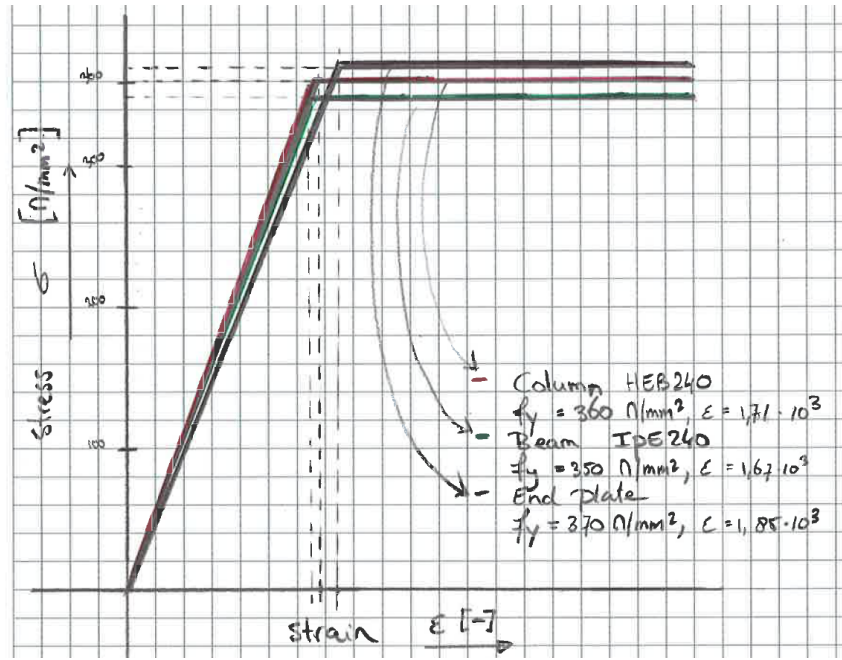 360
300
200
100
stress σ [N/mm²]
Column HEB240
fy = 360 N/mm², ε = 1,71·10³
Beam IPE240
fy = 350 N/mm², ε = 1,67·10³
End plate
fy = 370 N/mm², ε = 1,85·10³
strain ε [-]